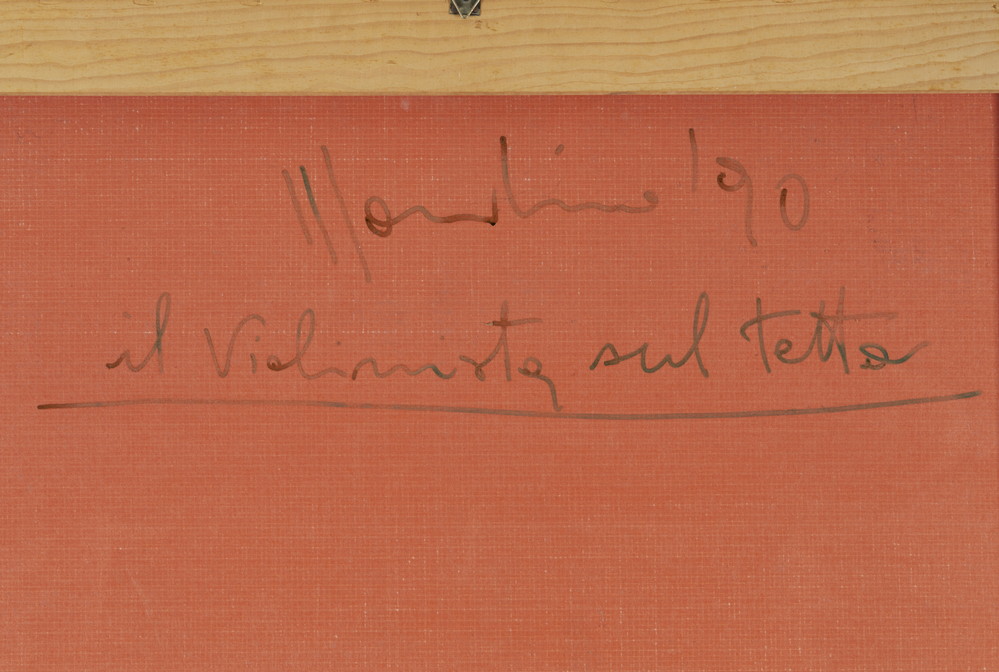 Mondino '90
il Violinista sul tetto